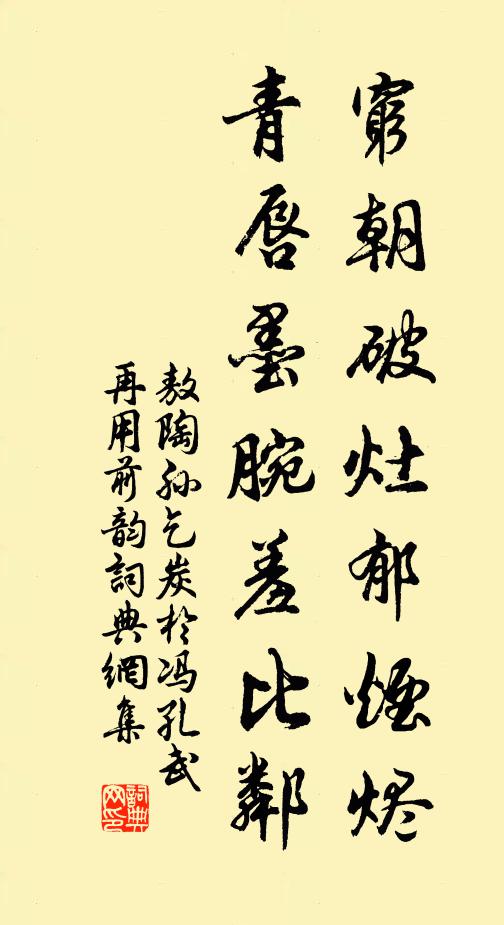 窮朝破灶郁煙烬
青唇墨腕羞比鄰
敖陶孙乞炭於冯孔武
再用前韵詞典網集
詞典网印